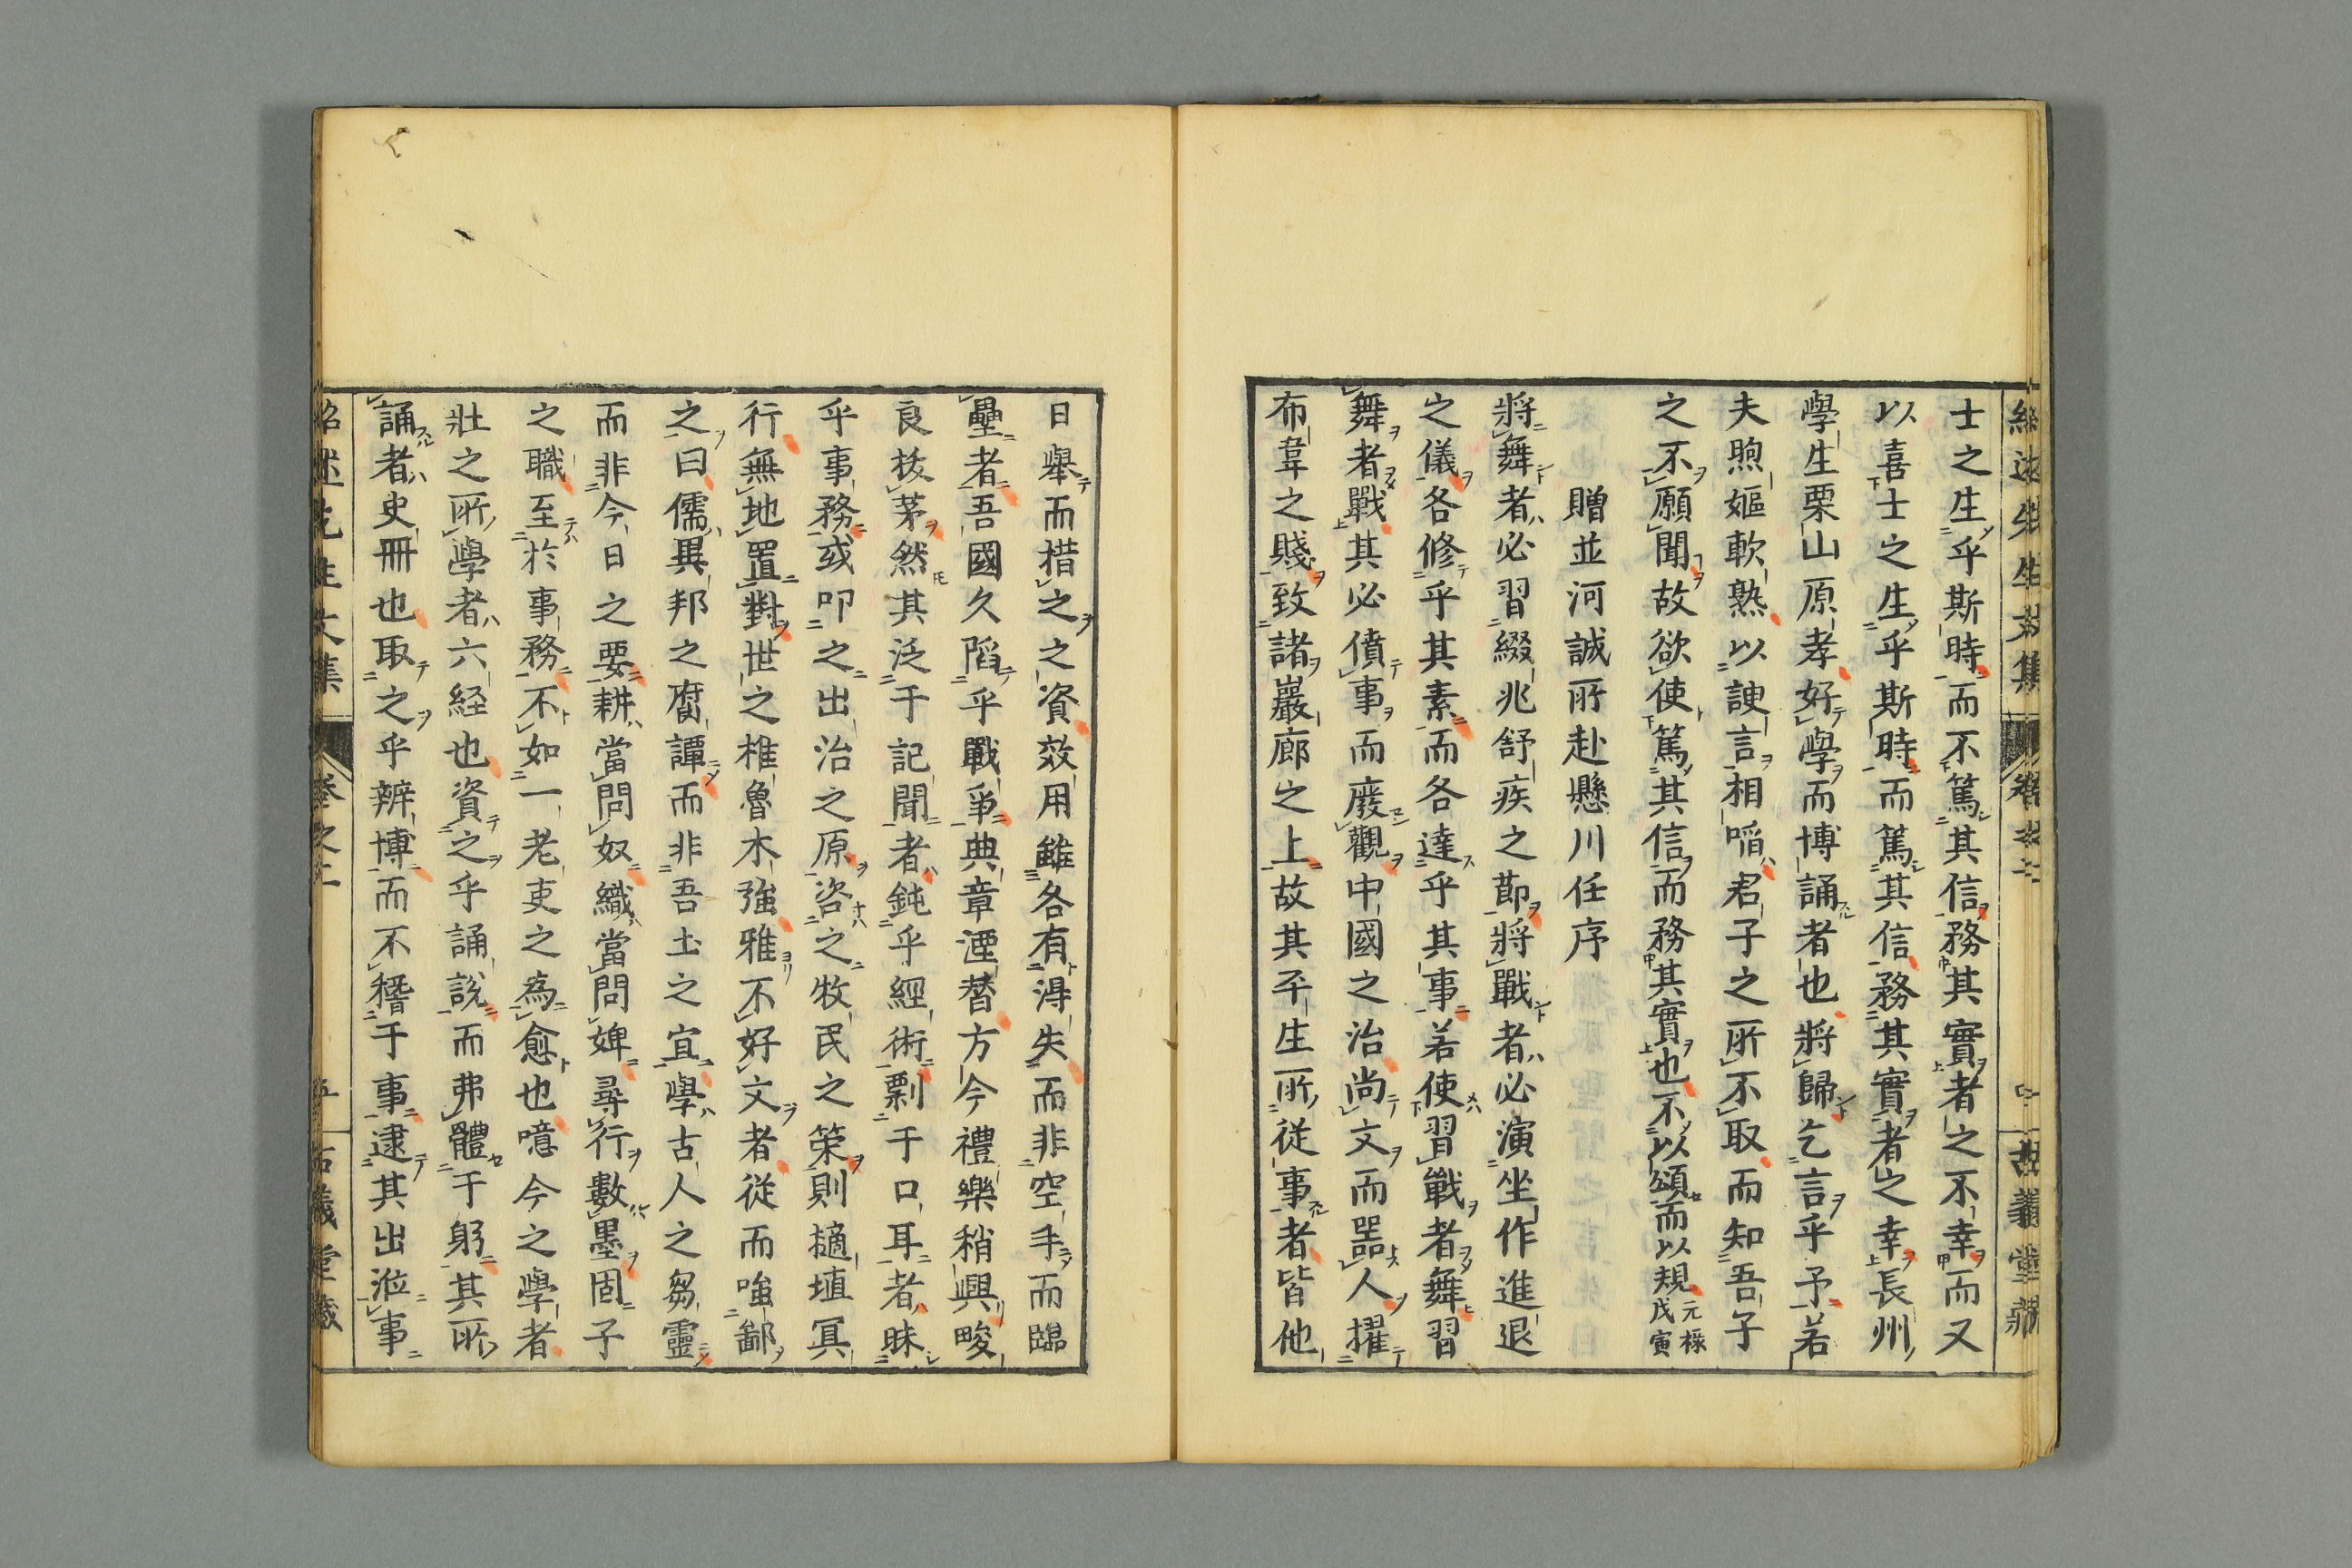 士之生乎斯時而不篤其信務其實者之不幸而又
以喜士之生乎斯時而篤其信務其實者之幸長州
學生栗山原孝好學而博誦者也將歸乞言乎予若
夫煦嫗軟熟以諛言相啗君子之所不取而知吾子
之不願聞故欲使篤其信而務其實也不以頌而以規元祿戊寅
贈並河誠所赴懸川任序
將舞者必習綴兆舒疾之節將戰者必演坐作進退
之儀各修乎其素而各達乎其事若使習戰者舞習
舞者戰其必僨事而廢觀中國之治尚文而器人擢
布韋之賤致諸巖廊之上故其平生所從事者皆他
日舉而措之之資效用雖各有得失而非空手而臨
壘者吾國久陷乎戰爭典章湮替方今禮樂稍興畯
良拔茅然其泛于記聞者鈍乎經術剽于口耳者昧
乎事務或叩之出治之原咨之牧民之策則擿埴冥
行無地置對世之椎魯木強雅不好文者從而嗤鄙
之曰儒異邦之腐譚而非吾土之宜學古人之芻靈
而非今日之要耕當問奴織當問婢尋行數墨固子
之職至於事務不如一老吏之為愈也噫今之學者
壯之所學者六経也資之乎誦說而弗體于躬其所
誦者史冊也取之乎辨博而不稽于事逮其出涖事
紹述先生文集 卷之二 古義堂藏